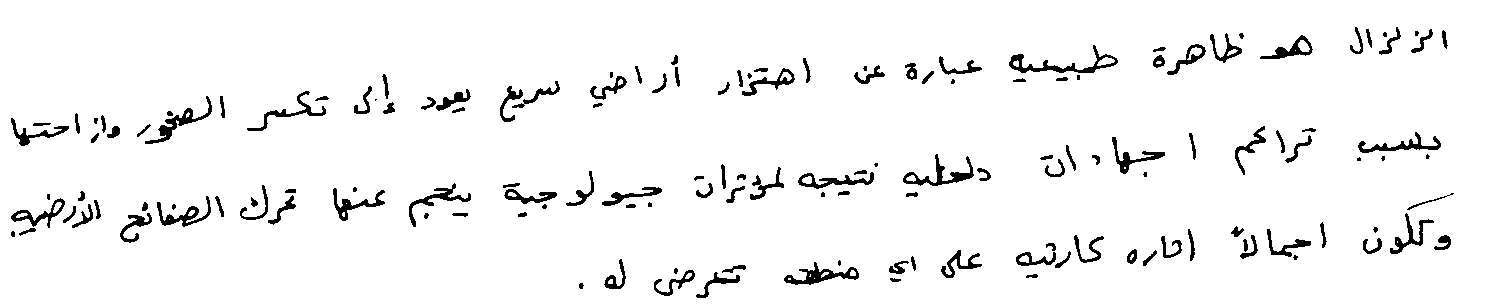 الزلزال هو ظاهرة طبيعيه عبارة عن اهتزاز أراضي سريع يعود إلى تكسر الصخور وازاحتها
بسبب تراكم اجهادات داخليه نتيجه لمؤثرات جيولوجية ينجم عنها تحرك الصفائح الأرضيه
وتكون اجمالاً اثاره كارثيه على اي منطقه تتعرض له .